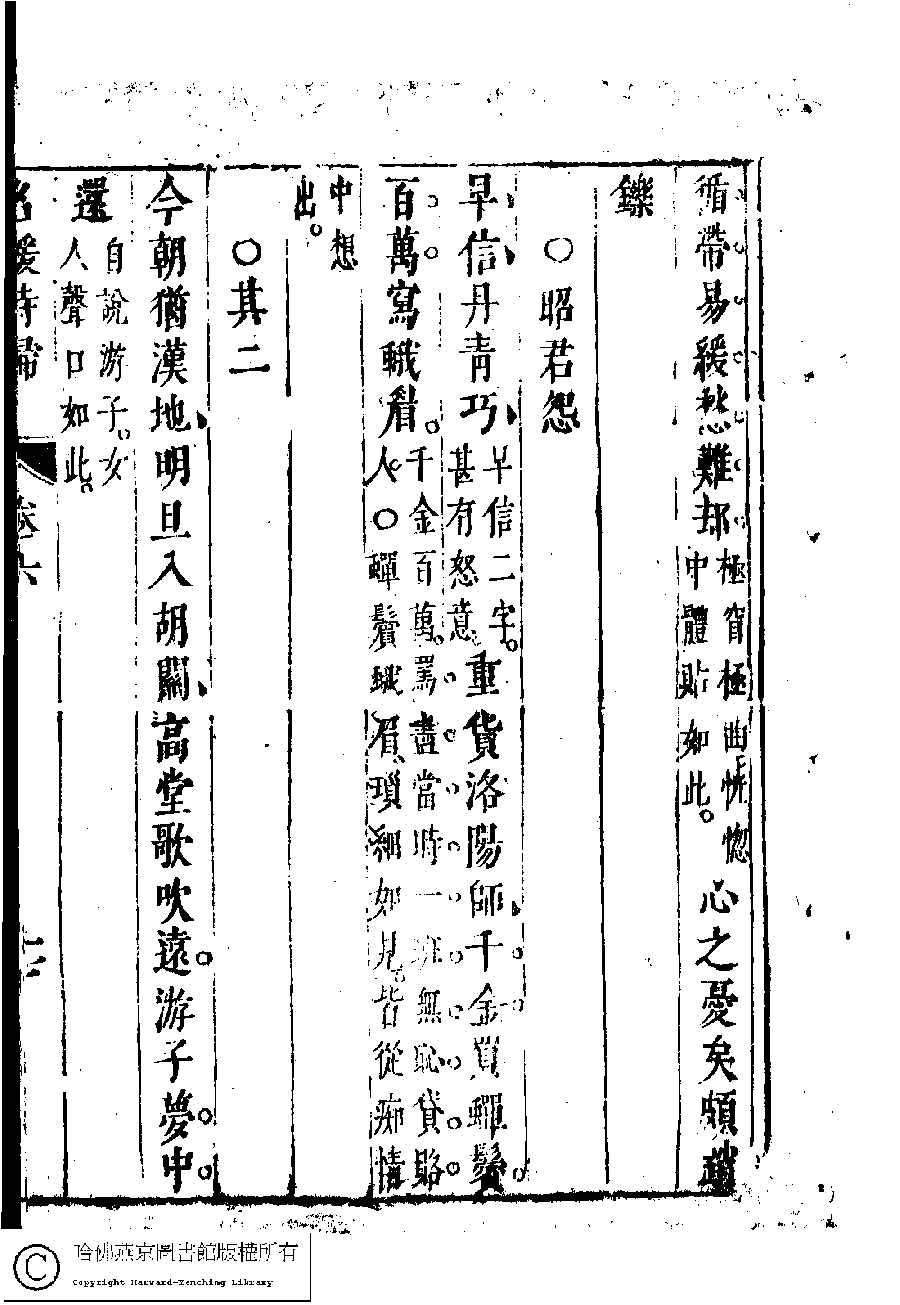 循帶易緩愁難却極窅極曲恍惚中體貼如此。心之憂矣頗
鑠
○昭君怨
早信丹青巧早信二字。甚有怒意。重貨洛陽師千金買蟬鬢
百萬寫蛾眉。千金百萬。罵盡當時一班無恥貸賂人。○蟬鬢蛾眉、瑣細如見。皆從痴情
中想出。
○其二
今朝猶漢地明旦入胡關高堂歌吹遠。游子夢中。
還自說游子。女人聲口如此。
名媛詩歸 卷六